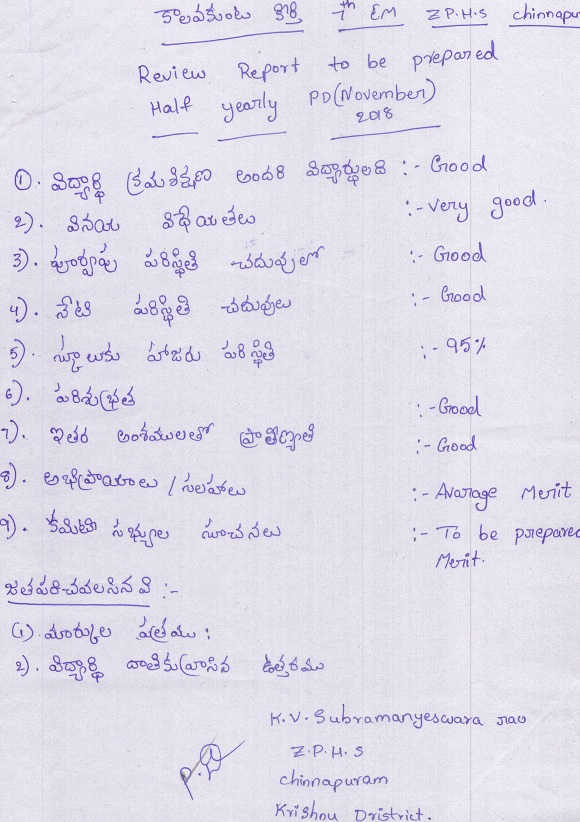 కాలవకుంట కీర్తి 7th EM Z.P.H.S chinnapu
Review Report to be prepared
Half yearly PD(November)
2018
1). విద్యార్థి క్రమశిక్షణ అందరి విద్యార్థులది :- Good
2). వినయ విధేయతలు :- very good.
3). పూర్వపు పరిస్థితి చదువులో :- Good
4). నేటి పరిస్థితి చదువులు :- Good
5). స్కూలుకు హాజరు పరిస్థితి :- 95%
6). పరిశుభ్రత :- Good
7). ఇతర అంశములతో :- Good
8). అభిప్రాయాలు / సలహాలు :- Avarage Merit
9). కమిటీ సభ్యుల సూచనలు :- To be prepared
Merit.
జతపరిచవలసినవి :-
(1) మార్కుల పత్రము :
2). విద్యార్థి దాతకు వ్రాసిన ఉత్తరము
K.V. Subramanyeswara rao
P.D
Z.P.H.S
chinnapuram
Krishnu Dristrict.